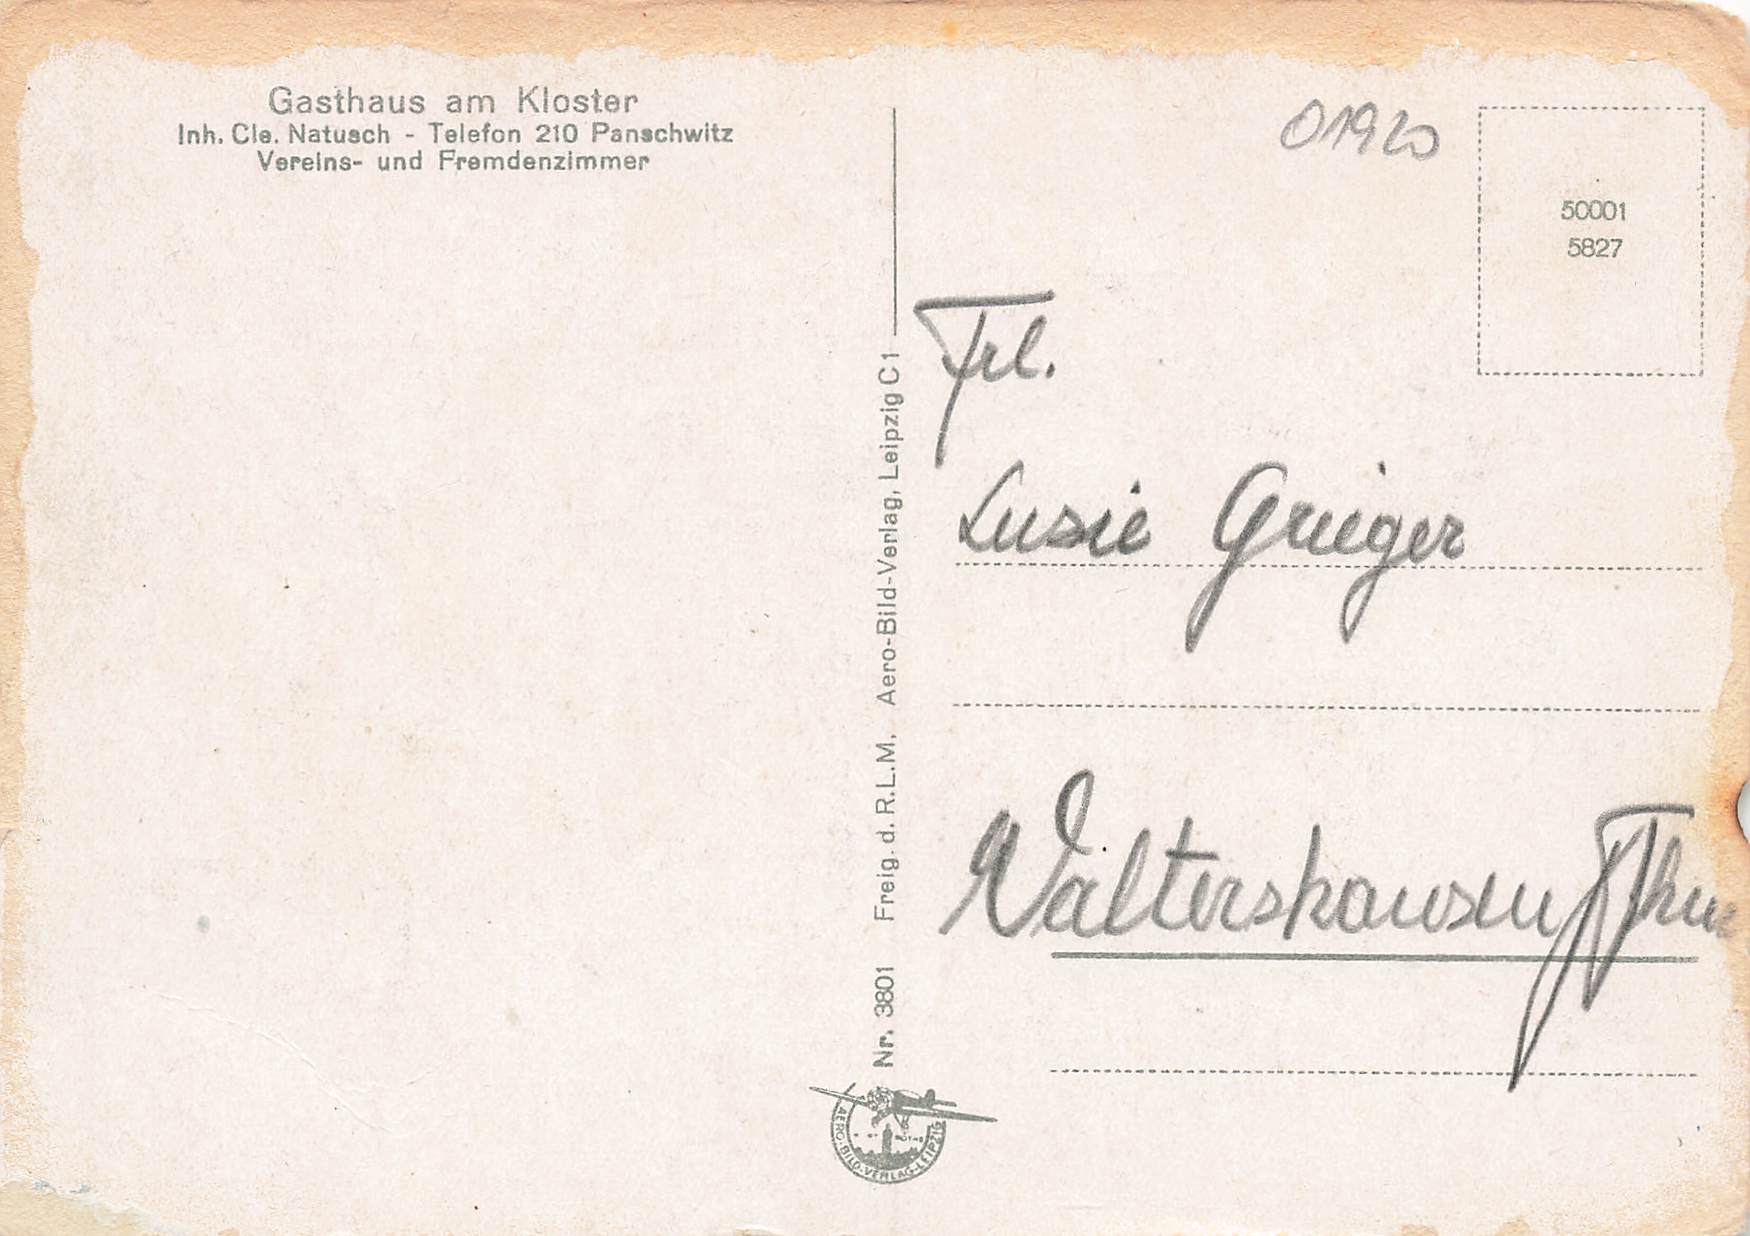 Gasthaus am Kloster
Inh. Cle. Natusch - Telefon 210 Panschwitz
Vereins- und Fremdenzimmer
01920
50001
5827
Frl.
Lusie Grieger
Waltershausen / Thür
Nr. 3801 Freig. d. R.L.M. Aero-Bild-Verlag, Leipzig C 1
AERO-BILD-VERLAG-LEIPZIG